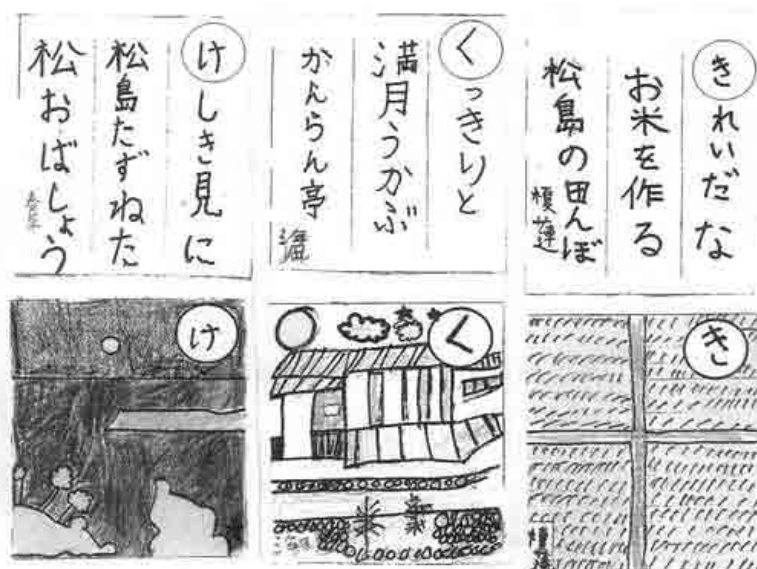 きれいだな
お米を作る
松島の田んぼ
くっきりと
満月うかぶ
かんらん亭
けしき見に
松島たずねた
松おばしょう
き
く
け